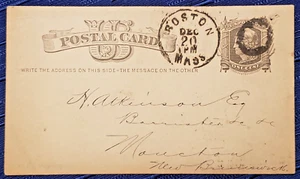 POSTAL CARD
BOSTON
DEC
20
1PM
MASS.
WRITE THE ADDRESS ON THIS SIDE-THE MESSAGE ON THE OTHER
H. Atkinson Esq
Barrister &c
Moncton
New Brunswick